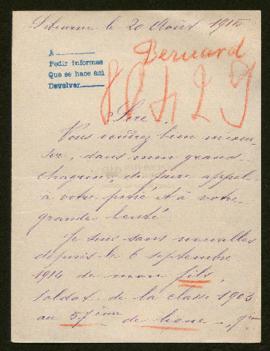 Libourne le 20 Août 1915
A
Pedir informes
Que se hace así
Devolver
Bernard
Sire
Vous voudrez bien m'excu-
ser, dans mon grand
chagrin, de faire appel
à votre pitié et à votre
grande bonté.
Je suis sans nouvelles
depuis le 6 septembre
1914 de mon fils,
soldat de la classe 1903
au 57ième de ligne